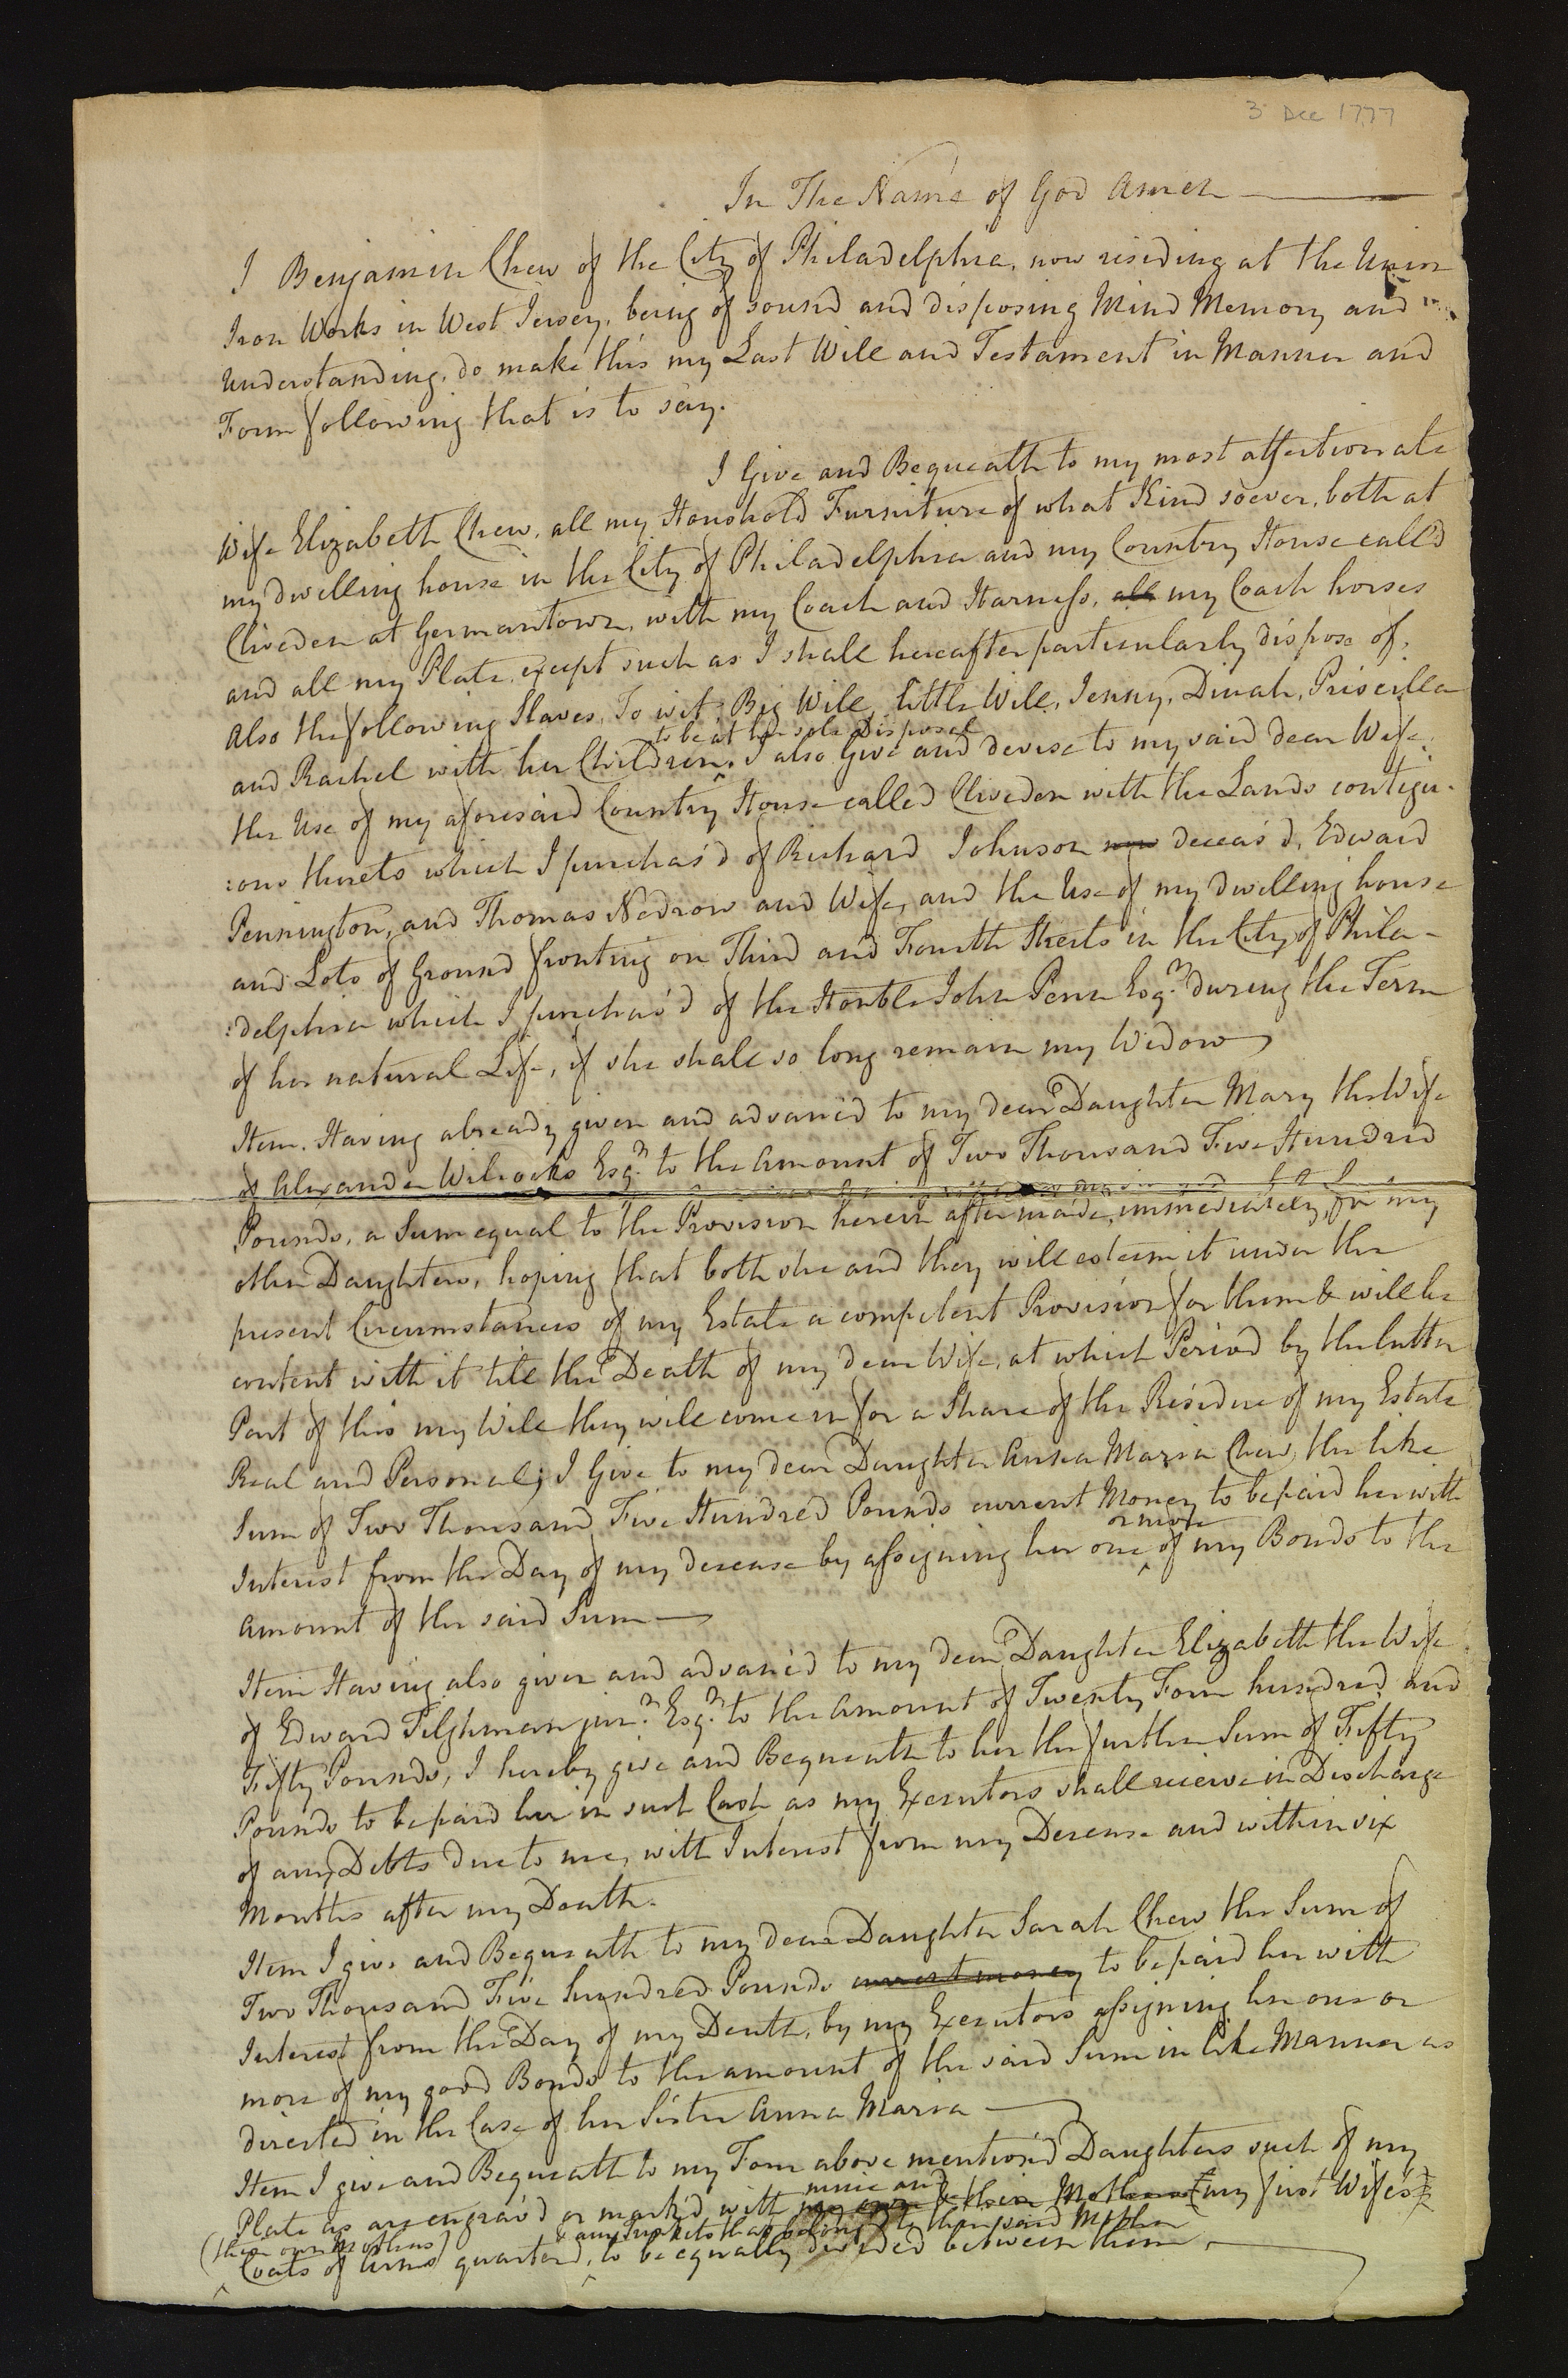 3 Dec 1777
In The Name of God Amen
I Benjamin Chew of the City of Philadelphia, now residing at the Union
Iron Works in West Jersey, being of sound and disposing Mind Memory and
Understanding, do make this my Last Will and Testament in Manner and
Form following that is to say.
I Give and Bequeath to my most affectionate
Wife Elizabeth Chew, all my Houshold Furniture of what Kind soever, both at
my dwelling house in the City of Philadelphia and my Country House call'd
Cliveden at Germantown, with my Coach and Harness, all my Coach horses
and all my Plate, except such as I shall hereafter particularly dispose of,
Also the following Slaves, To wit, Big Will, little Will, Jenny, Dinah, Priscilla
to be at her sole Disposal
and Rachel with her Children. I also Give and devise to my said dear Wife
the Use of my aforesaid Country House called Cliveden with the Lands contigu-
:ous thereto which I purchas'd of Richard Johnson now deceas'd, Edward
Pennington, and Thomas Nedrow and Wife, and the Use of my dwelling house
and Lots of Ground fronting on Third and Fourth Streets in the City of Phila-
:delphia which I purchas'd of the Honble John Penn Esqr. during the Term
of her natural Life, if she shall so long remain my Widow
Item. Having already given and advanc'd to my dear Daughter Mary the Wife
of Alexander Wilcocks Esqr. to the Amount of Two Thousand Five Hundred
Pounds, a Sum equal to the Provision herein after made, immediately, for my
other Daughters, hoping that both she and they will esteem it under the
present Circumstances of my Estate a competent Provision for them & will be
content with it till the Death of my dear Wife, at which Period by the latter
Part of this my Will they will come in for a Share of the Residue of my Estate
Real and Personal; I Give to my dear Daughter Anna Maria Chew, the like
Sum of Two Thousand Five Hundred Pounds current Money to be paid her with
or more
Interest from the Day of my decease by assigning her one of my Bonds to the
amount of the said Sum
Item Having also given and advanc'd to my dear Daughter Elizabeth the Wife
of Edward Tilghman junr. Esqr. to the Amount of Twenty Four hundred and
Fifty Pounds, I hereby give and Bequeath to her the further Sum of Fifty
Pounds to be paid her in such Cash as my Executors shall receive in Discharge
of any Debts due to me, with Interest from my Decease and within six
Months after my Death.
Item I give and Bequeath to my dear Daughter Sarah Chew the Sum of
Two Thousand Five hundred Pounds current money to be paid her with
Interest from the Day of my Death, by my Executors assigning her one or
more of my good Bonds to the amount of the said Sum in like Manner as
directed in the Case of her Sister Anna Maria
Item I give and Bequeath to my Four above mention'd Daughters such of my
mine and
Plate as are engrav'd or mark'd with my own & their Mothers (my first Wife's)
(their own Mothers) & any Trinkets that belong'd to their said Mother
Coats of Arms quartered, to be equally divided between them